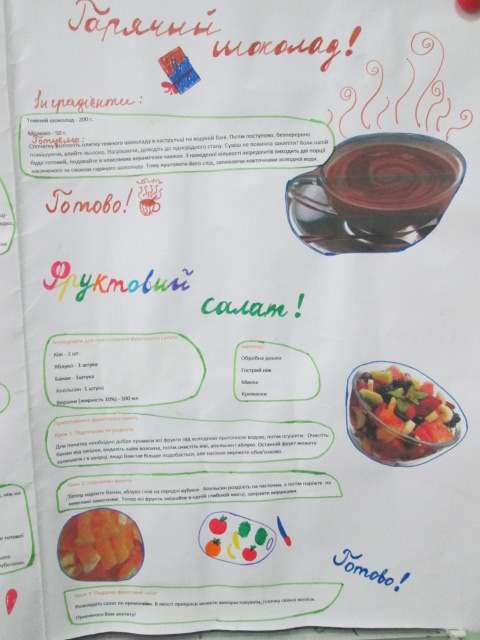 Гарячий
шоколад!
Інгрядієнти:
Темний шоколад - 200 г.
Молоко - 50 г.
Готуємо:
Спочатку розтопіть плитку темного шоколаду в каструльці на водяній бані. Потім поступово, безперервно
помішуючи, влийте молоко. Нагріваючи, доведіть до однорідного стану. Суміш не повинна закипіти! Коли напій
буде готовий, подавайте в невеликих керамічних чашках. З наведеної кількості інгредієнтів виходить дві порції
насиченого за смаком гарячого шоколаду. Тому куштувати його слід, запиваючи ковточками холодної води.
Готово!
Фруктовий
салат!
Інгредієнти для приготування фруктового салату
Ківі - 2 шт.
Яблуко - 1 штука
Банан - 1штука
Апельсин - 1 штука
Вершки (жирність 10%) - 100 мл
Інвентар:
Обробна дошка
Гострий ніж
Миска
Креманки
Приготування фруктового салату
Крок 1: Підготуємо інгредієнти
Для початку необхідно добре промити всі фрукти під холодною проточною водою, потім осушити. Очистіть
банан від шкірки, видаліть зайві волокна, потім очистіть ківі, апельсин і яблуко. Останній фрукт можете
залишити і в шкірці, якщо Вам так більше подобається, але насіння виріжте обов'язково.
Крок 2: Нарізаємо фрукти
Тепер наріжте банан, яблуко і ківі на середні кубики. Апельсин розділіть на часточки, а потім наріжте на
невеликі шматочки. Тепер всі фрукти змішайте в одній глибокій мисці, заправте вершками.
Готово!
Крок 3: Подаємо фруктовий салат
Розкладіть салат по креманкам. В якості прикраси можете використовувати гілочку свіжої меліси.
Приємного Вам апетиту!